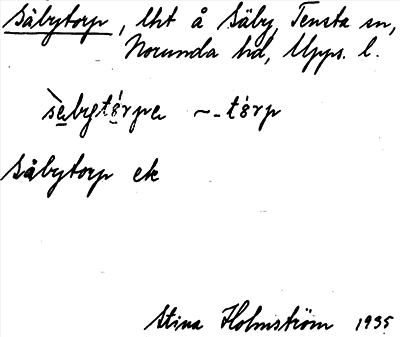 Säbytorp, lht å Säby, Tensta sn,
Norunda hd, Upps. l.
sèbytórpa ~- tórp
Säbytorp ek
Stina Holmström 1935